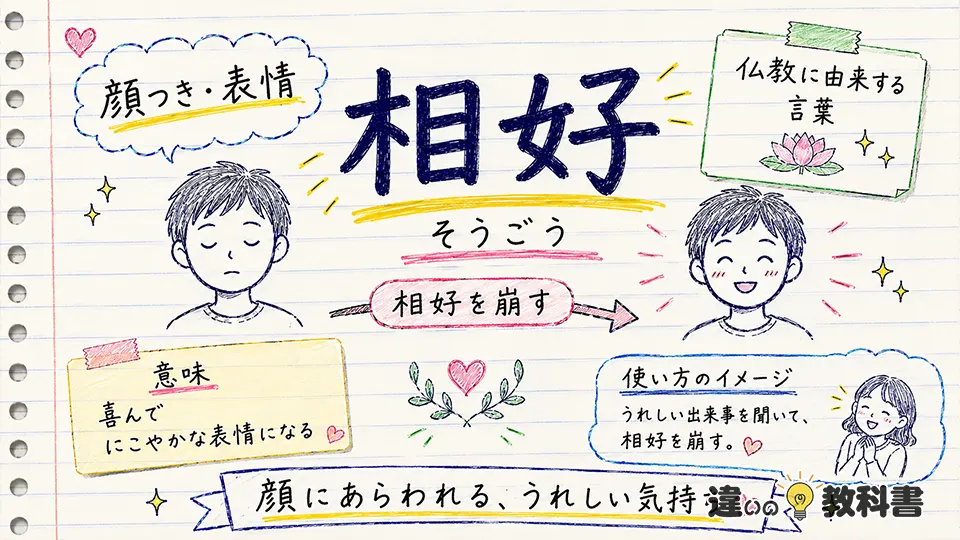 顔つき・表情
相好
そうごう
仏教に由来する
言葉
相好を崩す
意味
喜んで
にこやかな表情になる
使い方のイメージ
うれしい出来事を聞いて、
相好を崩す。
顔にあらわれる、うれしい気持
違いの教科書